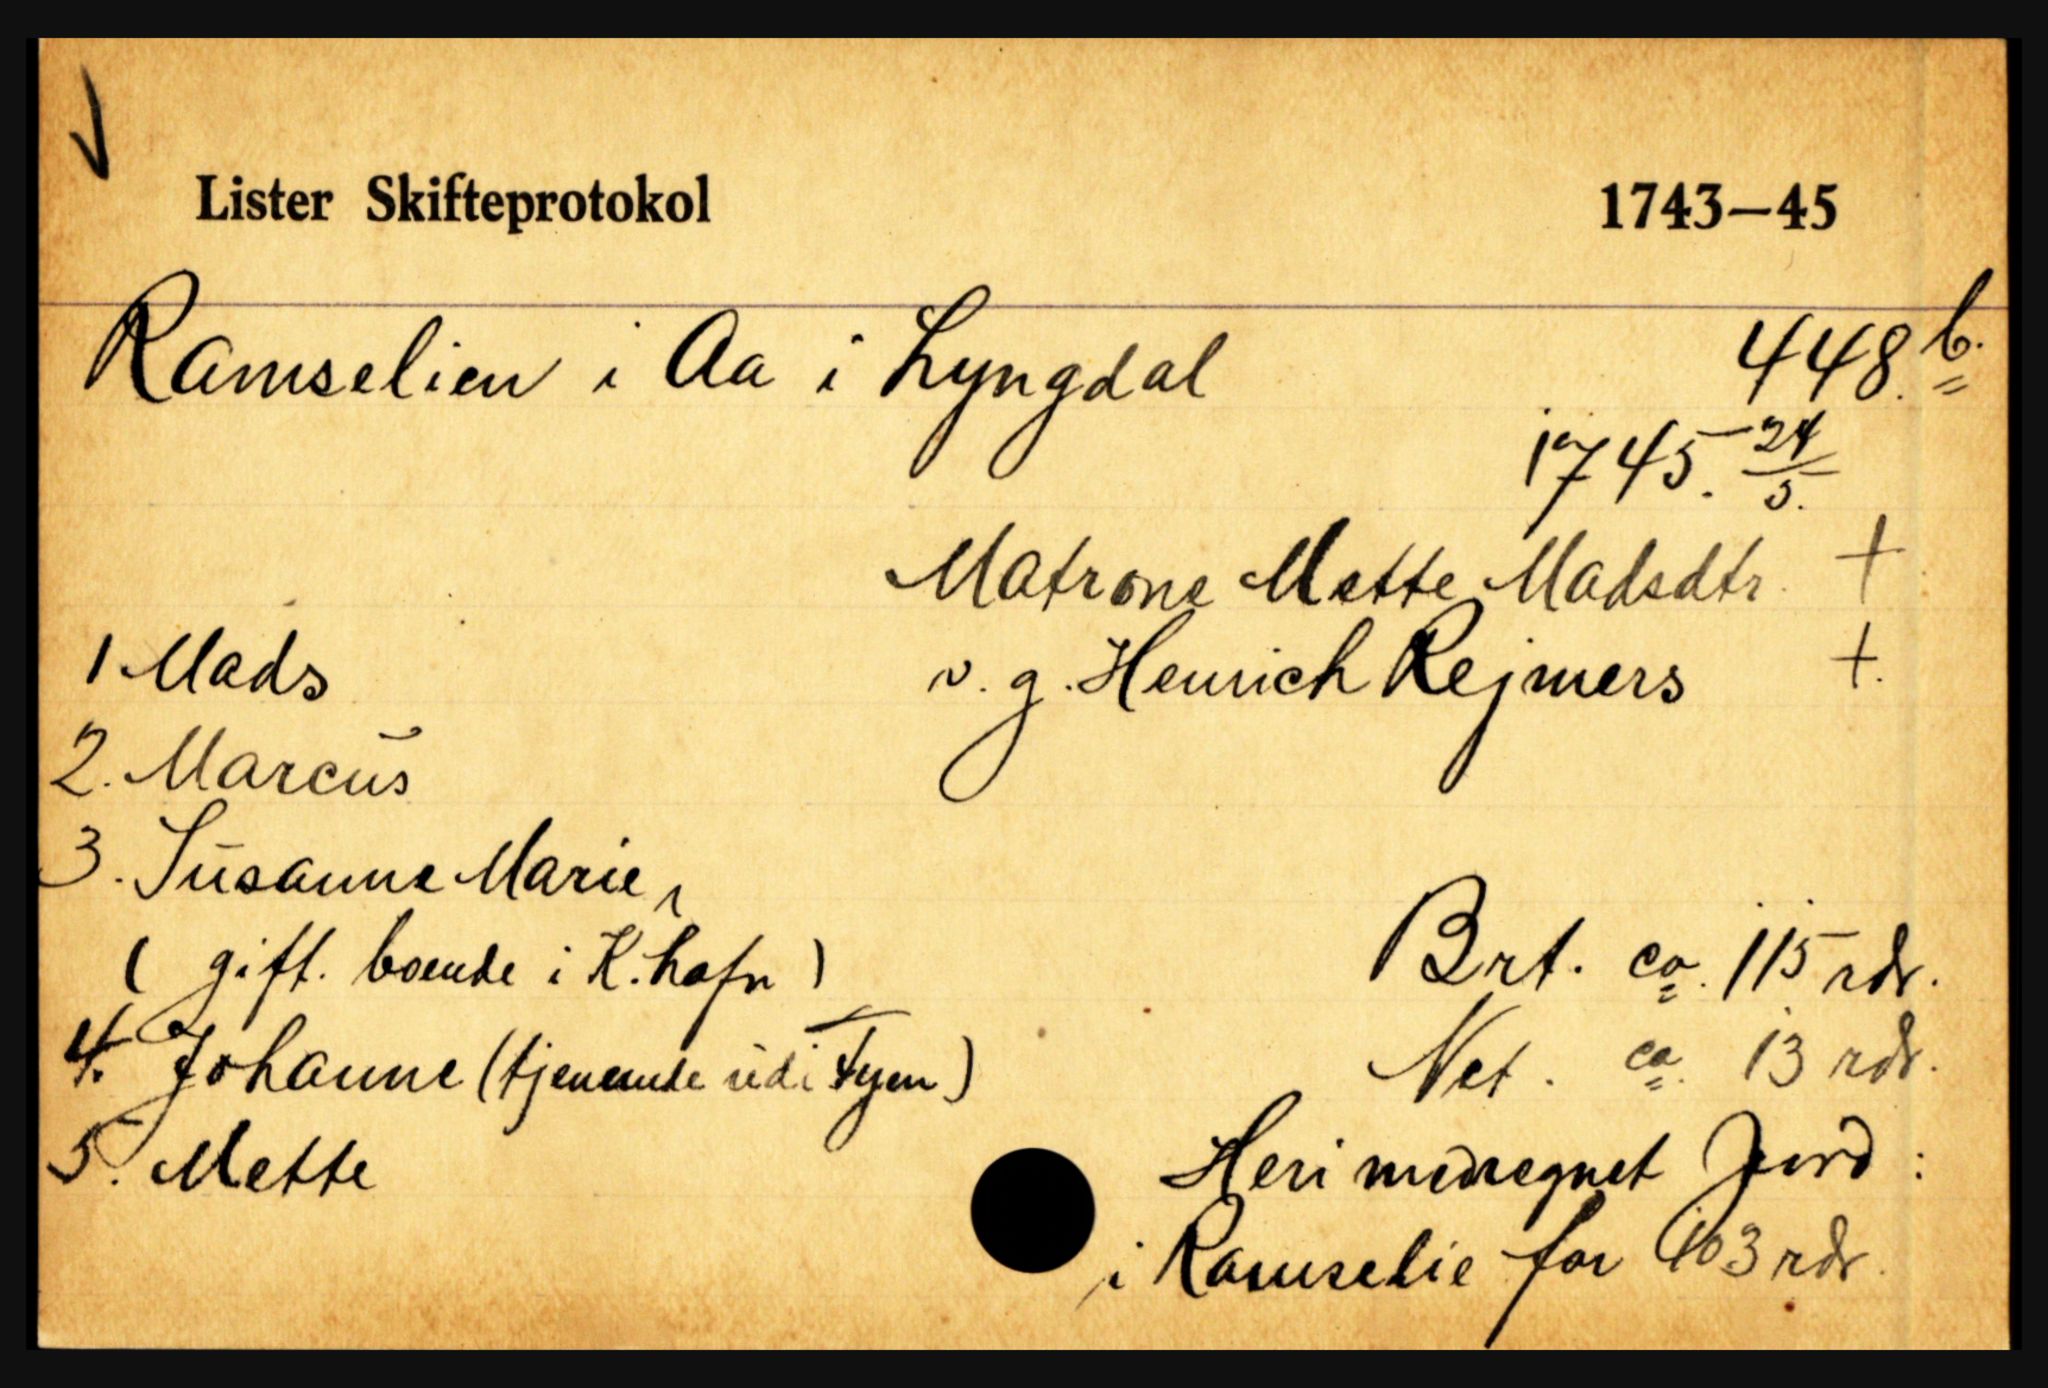 Lister Skifteprotokol 1743—45
Ramselien i Aa i Lyngdal 448 b.
1745. 24/5.
Matrone Mette Madsdtr. +
1 Mads v. g. Henrich Rejmers +.
2. Marcus
3. Susanne Marie,
( gift. boende i K.hafn )
Brt. ca. 115 rdr.
4. Johanne (tjenende udi Fyen)
Net. ca. 13 rdr.
5. Mette
Heri medregnet Jord :
i Ramselie for 103 rdr.